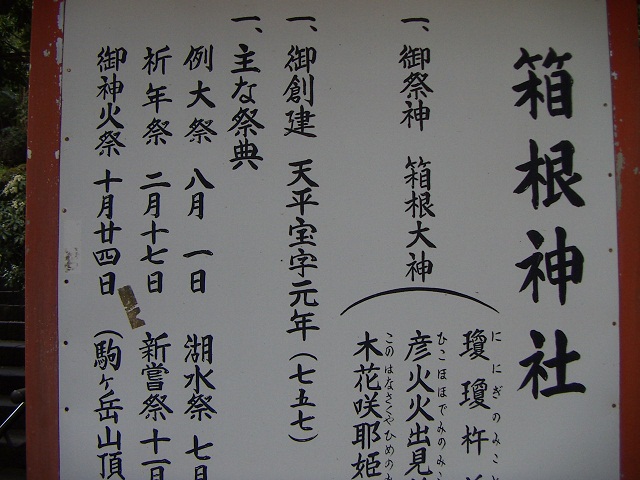 箱根神社
一、御祭神 箱根大神
瓊瓊杵
ににぎのみこと
彦火火出見
ひこほほでみのみ
木花咲耶姫
このはなさくやひめの
一、御創建 天平宝字元年(七五七)
一、主な祭典
例大祭 八月 一日 湖水祭 七
祈年祭 二月十七日 新嘗祭 十一
御神火祭 十月廿四日 (駒ヶ岳山頂